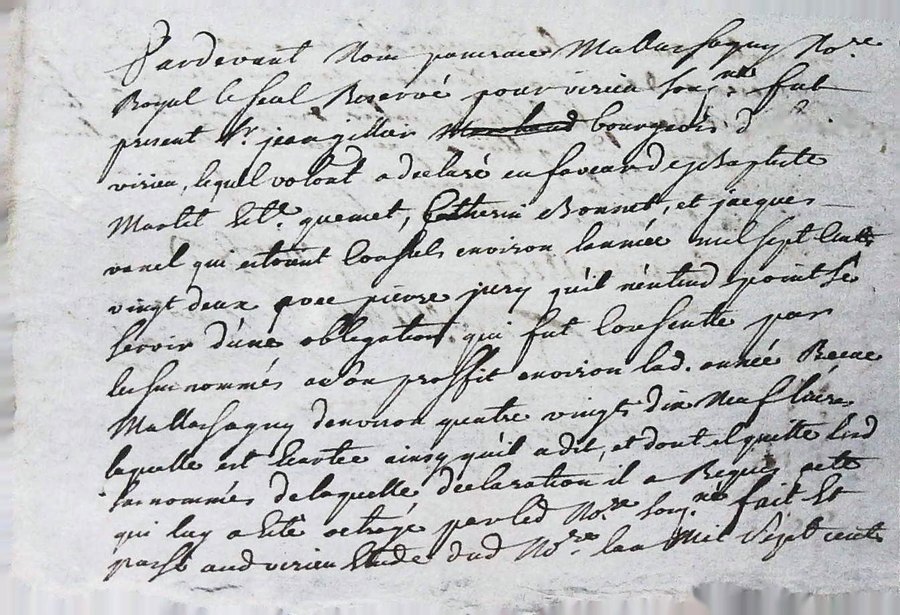 Pardevant Nous pancrace Mallassagny No.re
Royal le seal Reservé pour virieu soug.né fut
present Sr. jean gillar bourgeois d
virieu, lequel volont a declaré en faveur de jBaptiste
Martet Et.e quemet, Catherine Bonnet, et jacques
vanel qui estoient Consuls environ lannée mil sept Cents
vingt deux avec pierre jury quil n'entend point sê
servir d'une oblegation qui fut Consentie par
les surnommés a son proffit environ lad. année Receue
Mallassagny denviron quatre vingts dix Neuf livres
laquelle est Exortee ainsy qu'il a dit, et dont il quitte lesd
surnommés de laquelle declaration il a Requis acte
qui luy a Eté octroyé par led No.re soug.né fait Et
passé aud virieu Etude dud No.re lan Mil Sept cents